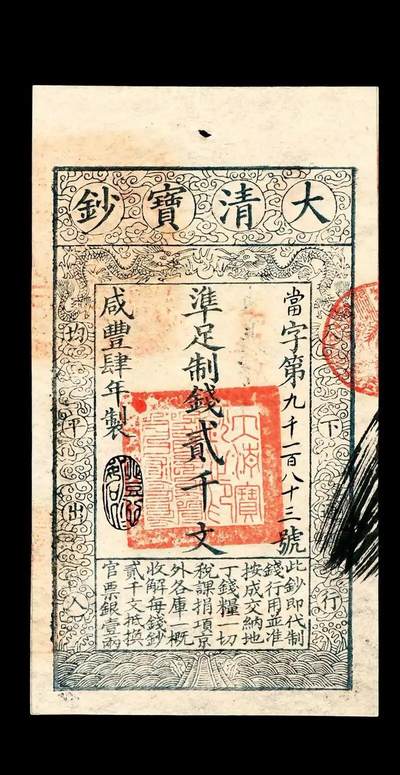 大清寶鈔
下行
當字第九千一百八十三號
準足制錢貳千文
咸豐肆年製
均平出入
此鈔即代制
錢行用並准
按成交納地
丁錢糧一切
稅課捐項京
外各庫一概
收解每錢鈔
貳千文抵換
官票銀壹兩